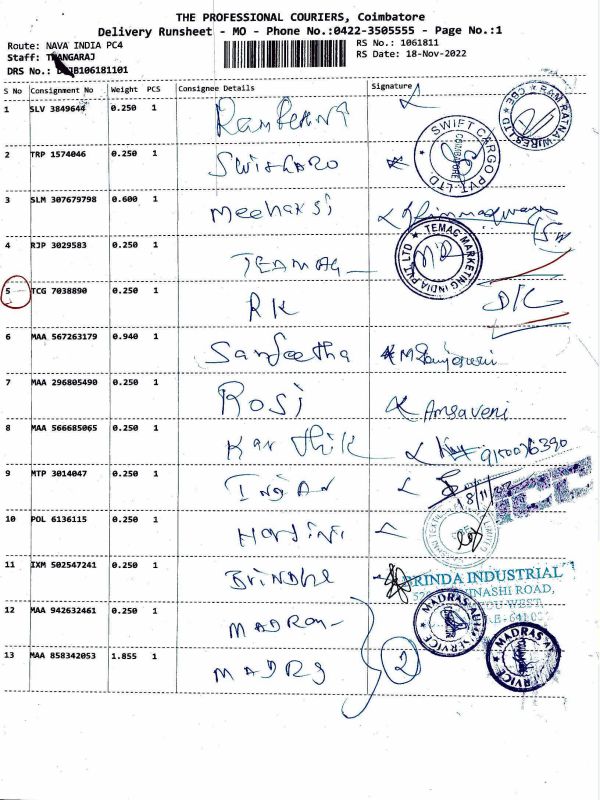 THE PROFESSIONAL COURIERS, Coimbatore
Delivery Runsheet - MO - Phone No.:0422-3505555 - Page No.:1
Route: NAVA INDIA PC4 RS No.: 1061811
Staff: THANGARAJ RS Date: 18-Nov-2022
DRS No.:
S No Consignment No Weight PCS Consignee Details Signature
1 SLV 3849644 0.250 1 RAM RATNA WIRES LTD CBE
2 TRP 1574046 0.250 1 SWIFT CARGO PVT. LTD. COIMBATORE
3 SLM 307679798 0.600 1
4 RJP 3029583 0.250 1 TEMAC MARKETING INDIA PVT. LTD
5 TCG 7038890 0.250 1 RK
6 MAA 567263179 0.940 1 Sangeetha
7 MAA 296805490 0.250 1 Rosi Amsaveni
8 MAA 566685065 0.250 1 Karthik
9 MTP 3014047 0.250 1 18/11/22
10 POL 6136115 0.250 1
11 IXM 502547241 0.250 1 BRINDA INDUSTRIAL
ROAD,
12 MAA 942632461 0.250 1 MADRAS SERVICE
13 MAA 858342053 1.855 1 2 MADRAS SERVICE